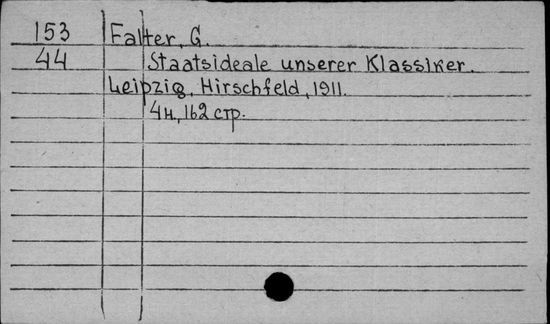 153 Falter, G.
44 Staatsideale unserer Klassiker.
Leipzig, Hirschfeld, 1911.
4н, 162 стр.